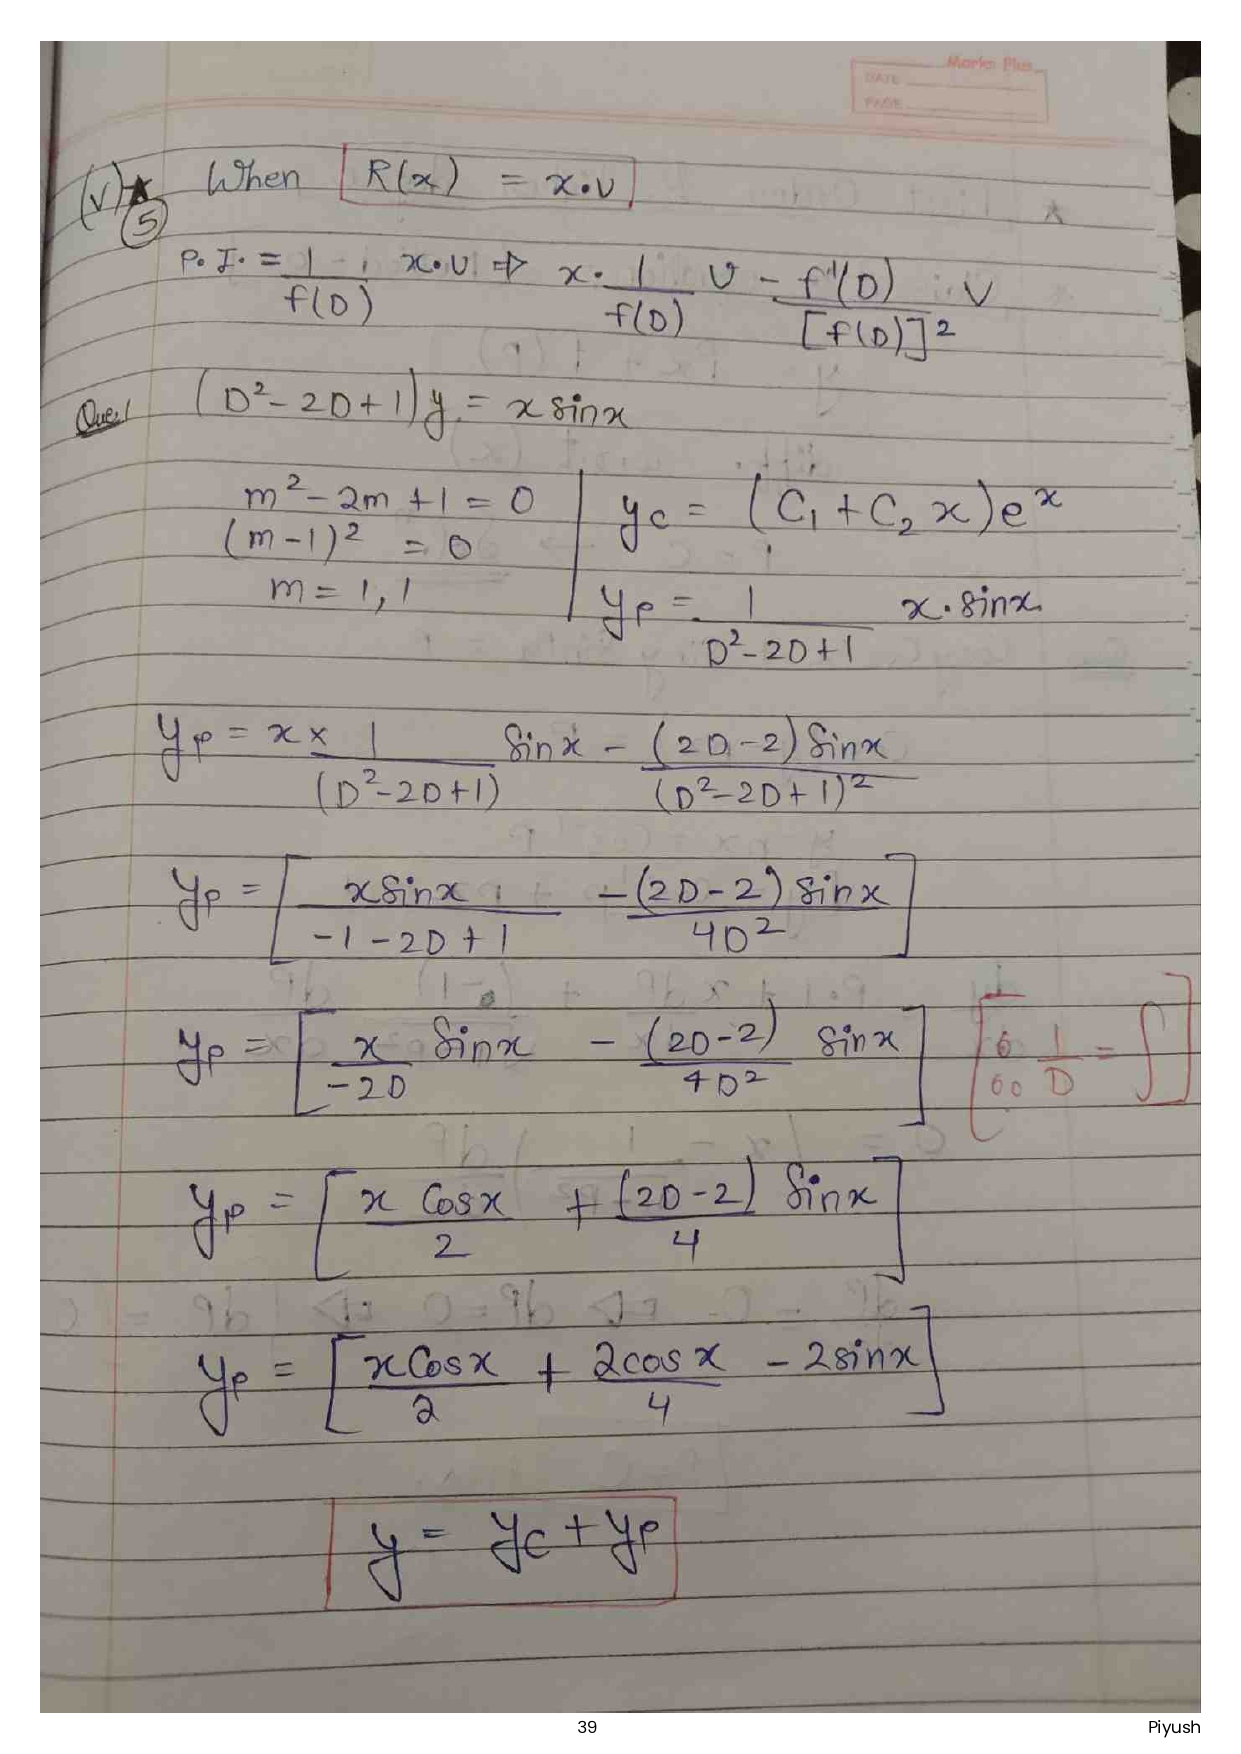 Marks Plus
DATE
PAGE
(V)★ When R(x) = x·v
(5)
P.I. = 1/f(D) x·v ⇒ x· 1/f(D) v - f'(D)/[f(D)]² v
Ques1 (D²-2D+1)y = x sinx
m²-2m+1=0 | yc = (C₁+C₂x)eˣ
(m-1)² = 0
m = 1,1 | yp = 1/(D²-2D+1) x·sinx
yp = x × 1/(D²-2D+1) sinx - (2D-2) sinx/(D²-2D+1)²
yp = [ x sinx/(-1-2D+1) - (2D-2) sinx/4D² ]
yp = [ x/-2D sinx - (2D-2)/4D² sinx ] [ ∵ 1/D = ∫ ]
yp = [ x cosx/2 + (2D-2)/4 sinx ]
yp = [ x cosx/2 + 2cosx/4 - 2sinx ]
y = yc + yp
39
Piyush